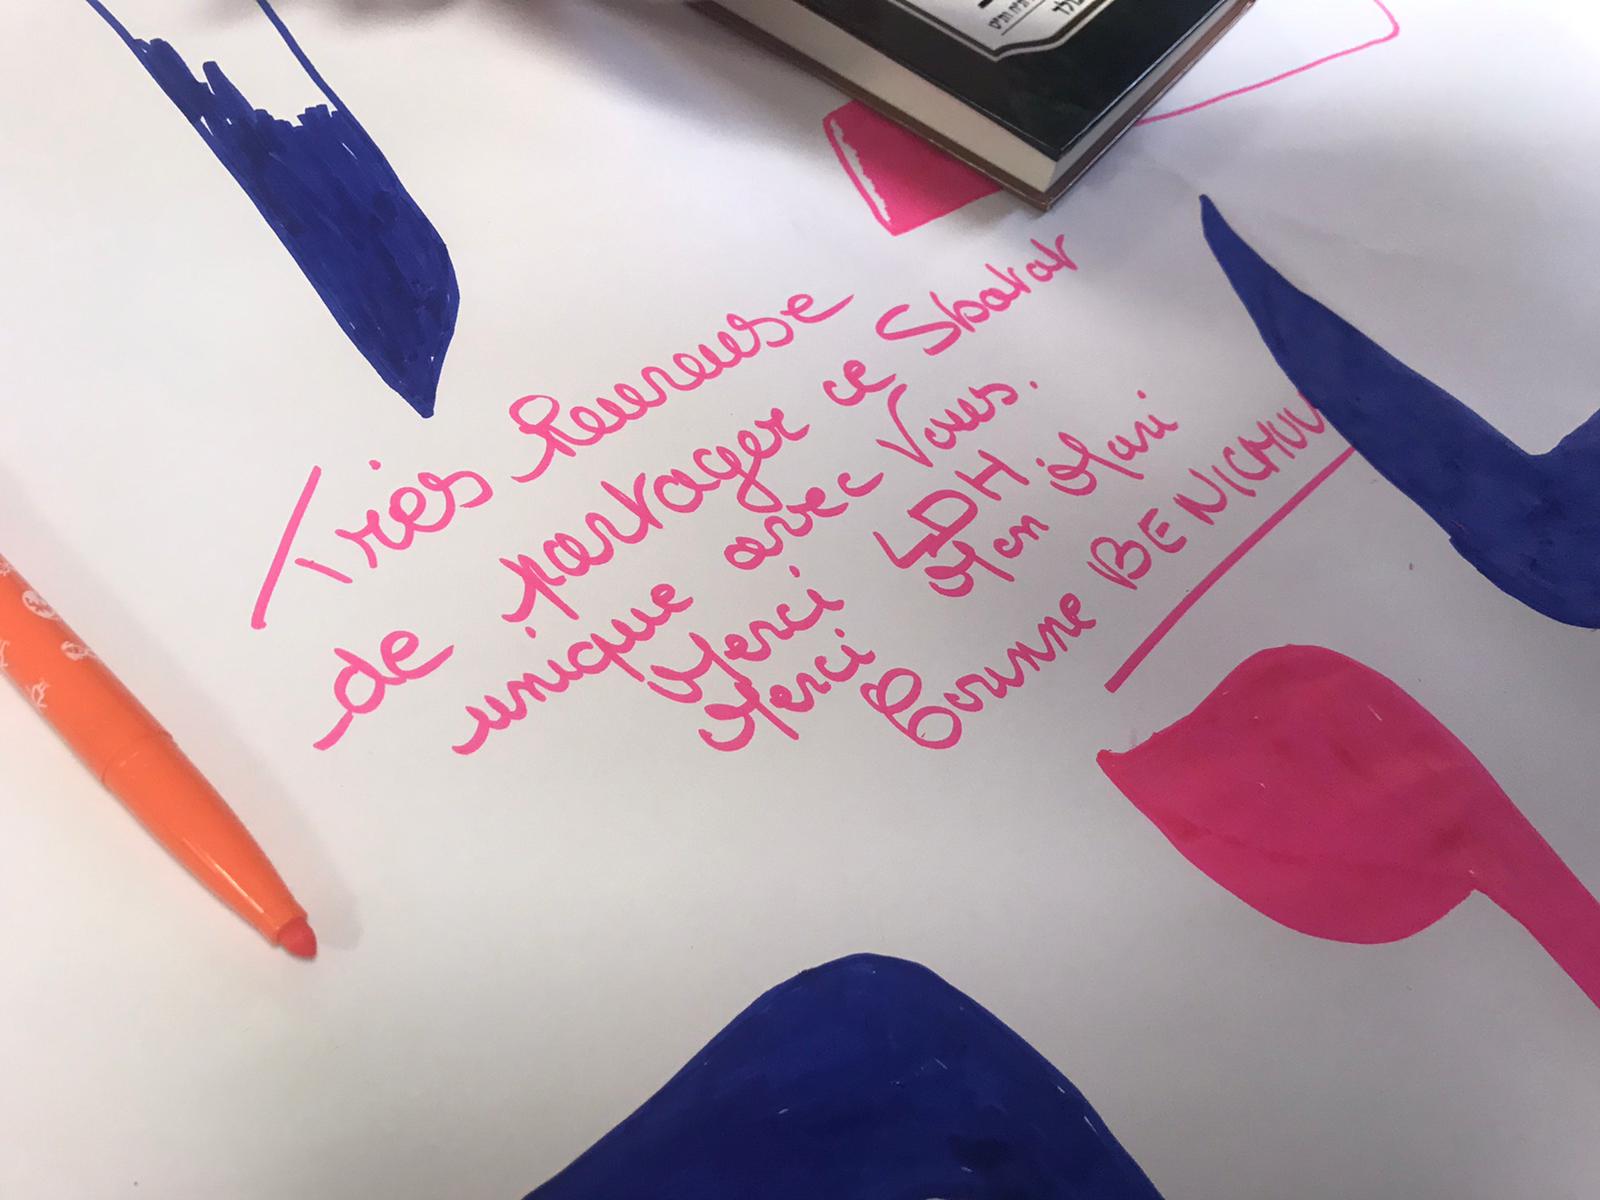 Très heureuse
de partager ce Shabat
unique avec Vous.
Merci LDH
Merci Mon Mari
Corinne BENICHOU